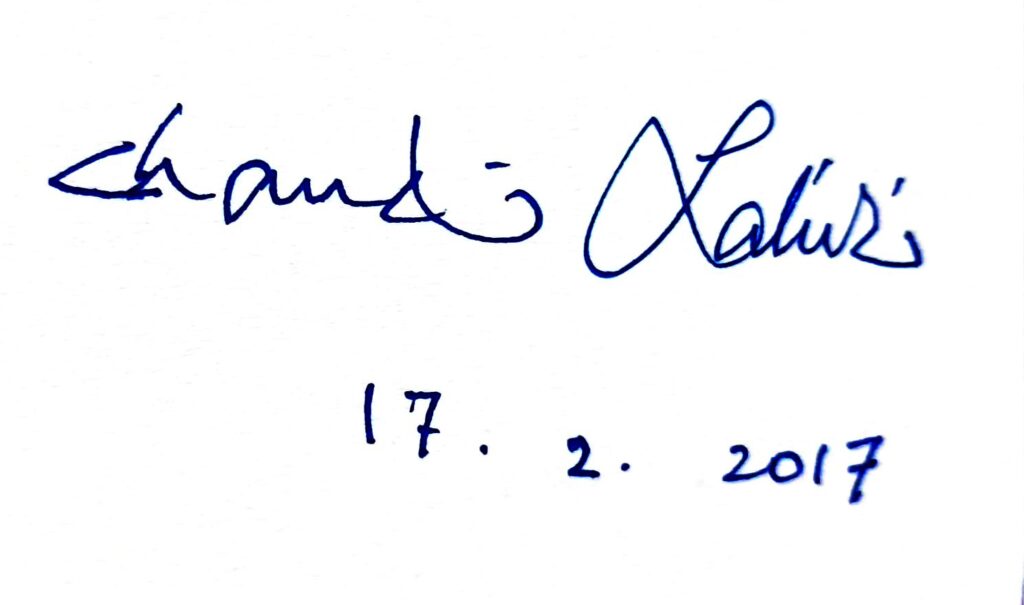 Chandi Lahiri
17. 2. 2017